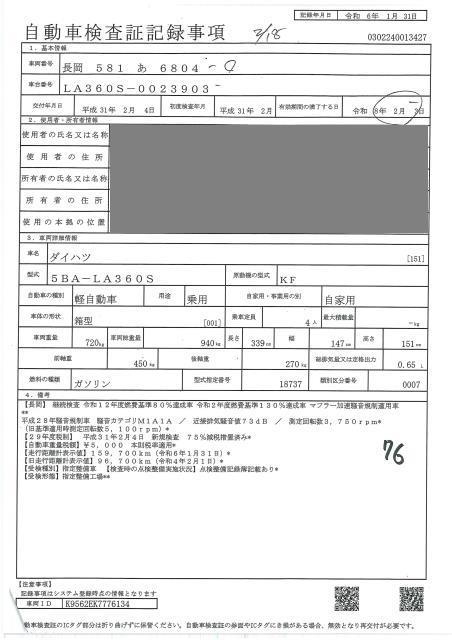 記録年月日 令和 6年 1月 31日
自動車検査証記録事項 2/15
0302240013427
1. 基本情報
車両番号 長岡 581 あ 6804
車台番号 LA360S-0023903
交付年月日 平成 31年 2月 4日 初度検査年月 平成 31年 2月 有効期間の満了する日 令和 8年 2月 3日
2. 使用者・所有者情報
使用者の氏名又は名称
使用者の住所
所有者の氏名又は名称
所有者の住所
使用の本拠の位置
3. 車両詳細情報
車名 ダイハツ [151]
型式 5BA-LA360S 原動機の型式 KF
自動車の種別 軽自動車 用途 乗用 自家用・事業用の別 自家用
車体の形状 箱型 [001] 乗車定員 4人 最大積載量 -kg
車両重量 720kg 車両総重量 940kg 長さ 339cm 幅 147cm 高さ 151cm
前軸重 450kg 後軸重 270kg 総排気量又は定格出力 0.65 L
燃料の種類 ガソリン 型式指定番号 18737 類別区分番号 0007
4. 備考
【長岡】 継続検査 令和12年度燃費基準80%達成車 令和2年度燃費基準130%達成車 マフラー加速騒音規制適用車
**
平成28年騒音規制車 騒音カテゴリM1A1A / 近接排気騒音値73dB / 測定回転数3,750rpm*
(旧基準適用時測定回転数5,100rpm)*
【29年度税制】 平成31年2月4日 新規検査 75%減税措置済み*
【自動車重量税額】 ¥5,000 本則税率適用*
【走行距離計表示値】159,700km (令和6年1月31日)*
【旧走行距離計表示値】96,700km (令和4年2月1日)*
【受検種別】指定整備車 【検査時の点検整備実施状況】点検整備記録簿記載あり*
【受検形態】指定整備工場**
76
【注意事項】
記録事項はシステム登録時点の情報となります
車両ID K9562EK7776134
自動車検査証のICタグ部分は折り曲げずに保管ください。自動車検査証の券面やICタグにき損がある場合、無効となり再交付が必要です。